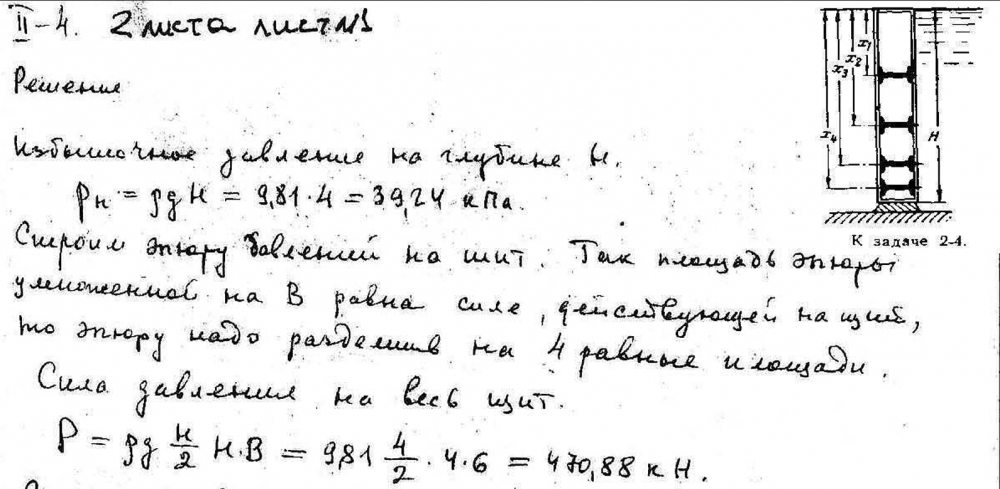 II-4. 2 листа лист N1
Решение
Избыточное давление на глубине H.
pн = ρgH = 9,81·4 = 39,24 кПа.
Строим эпюру давлений на щит. Так площадь эпюры
умноженной на B равна силе, действующей на щит,
то эпюру надо разделив на 4 равные площади.
Сила давления на весь щит.
P = ρg H/2 H·B = 9,81 4/2 · 4·6 = 470,88 кН.
x₁
x₂
x₃
x₄
H
К задаче 2-4.